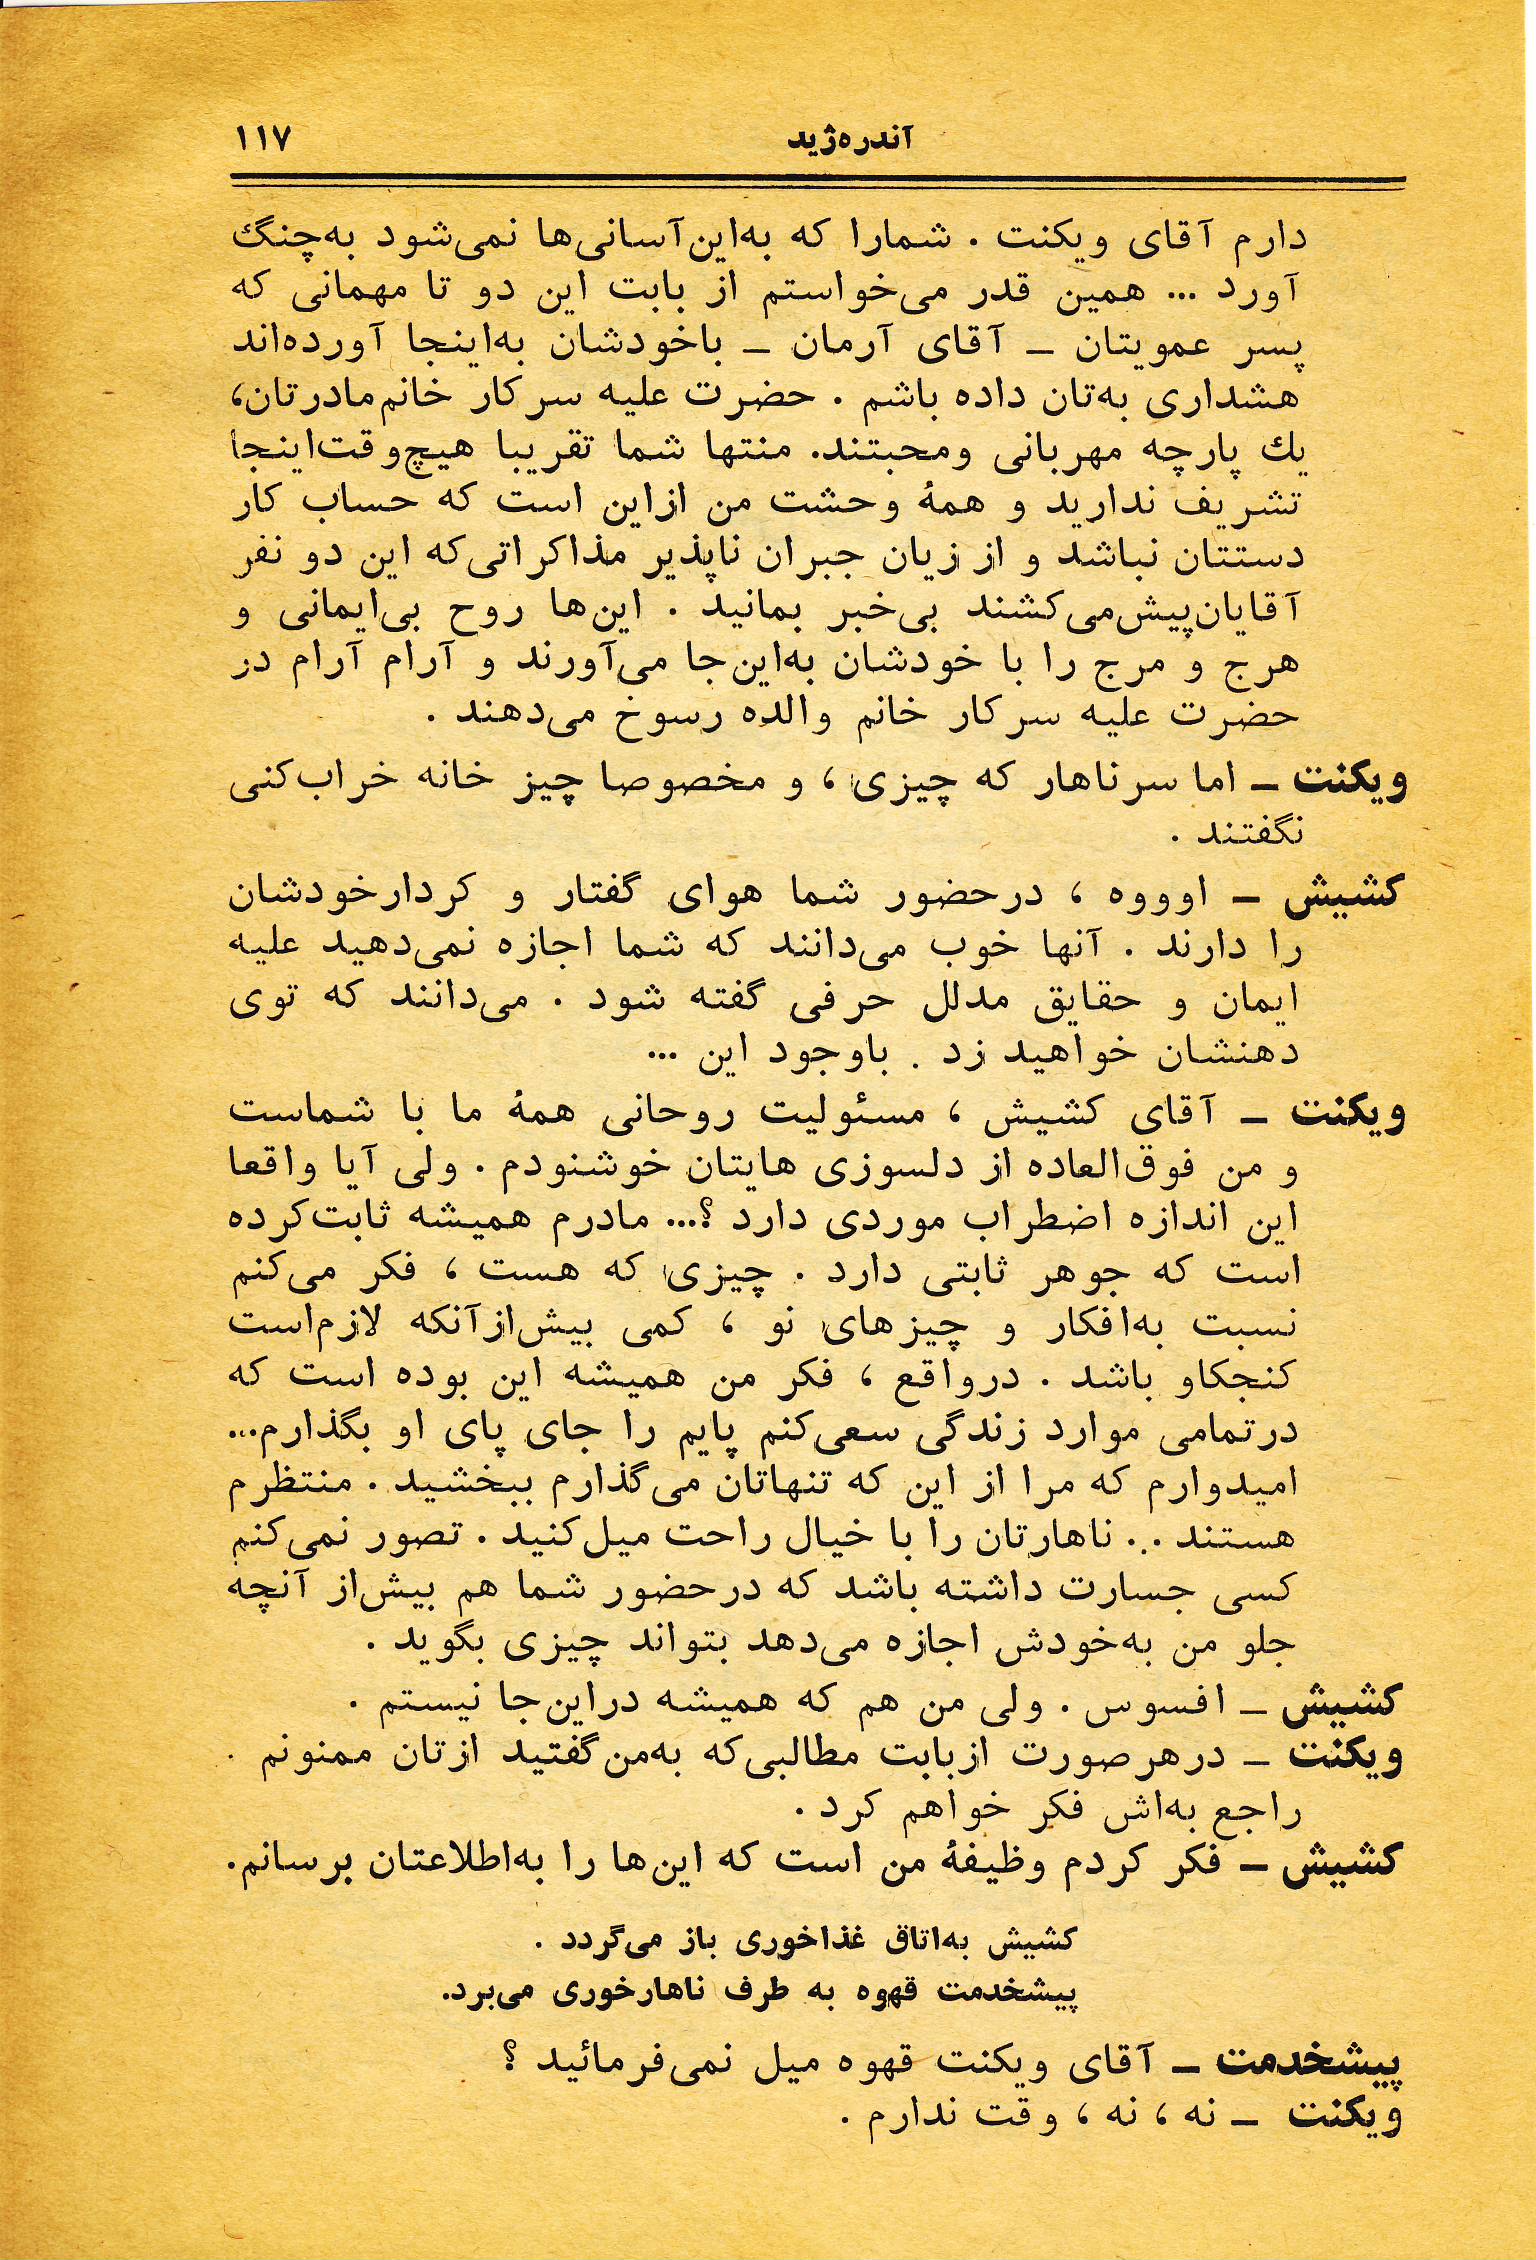 آندره‌ژید ۱۱۷
دارم آقای ویکنت . شمارا که به‌این‌آسانی‌ها نمی‌شود به‌چنگ
آورد ... همین قدر می‌خواستم از بابت این دو تا مهمانی که
پسر عمویتان ــ آقای آرمان ــ باخودشان به‌اینجا آورده‌اند
هشداری به‌تان داده باشم . حضرت علیه سرکار خانم‌مادرتان،
یك پارچه مهربانی ومحبتند. منتها شما تقریبا هیچ‌وقت‌اینجا
تشریف ندارید و همهٔ وحشت من ازاین است که حساب کار
دستتان نباشد و از زیان جبران ناپذیر مذاکراتی‌که این دو نفر
آقایان‌پیش‌می‌کشند بی‌خبر بمانید . این‌ها روح بی‌ایمانی و
هرج و مرج را با خودشان به‌این‌جا می‌آورند و آرام آرام در
حضرت علیه سرکار خانم والده رسوخ می‌دهند .
ویکنت ــ اما سرناهار که چیزی ، و مخصوصا چیز خانه خراب‌کنی
نگفتند .
کشیش ــ اوووه ، درحضور شما هوای گفتار و کردارخودشان
را دارند . آنها خوب می‌دانند که شما اجازه نمی‌دهید علیه
ایمان و حقایق مدلل حرفی گفته شود . می‌دانند که توی
دهنشان خواهید زد . باوجود این ...
ویکنت ــ آقای کشیش ، مسئولیت روحانی همهٔ ما با شماست
و من فوق‌العاده از دلسوزی هایتان خوشنودم . ولی آیا واقعا
این اندازه اضطراب موردی دارد ؟... مادرم همیشه ثابت‌کرده
است که جوهر ثابتی دارد . چیزی که هست ، فکر می‌کنم
نسبت به‌افکار و چیزهای نو ، کمی بیش‌ازآنکه لازم‌است
کنجکاو باشد . درواقع ، فکر من همیشه این بوده است که
درتمامی موارد زندگی سعی‌کنم پایم را جای پای او بگذارم...
امیدوارم که مرا از این که تنهاتان می‌گذارم ببخشید . منتظرم
هستند ... ناهارتان را با خیال راحت میل‌کنید . تصور نمی‌کنم
کسی جسارت داشته باشد که درحضور شما هم بیش‌از آنچه
جلو من به‌خودش اجازه می‌دهد بتواند چیزی بگوید .
کشیش ــ افسوس . ولی من هم که همیشه دراین‌جا نیستم .
ویکنت ــ درهرصورت ازبابت مطالبی‌که به‌من‌گفتید ازتان ممنونم .
راجع به‌اش فکر خواهم کرد .
کشیش ــ فکر کردم وظیفهٔ من است که این‌ها را به‌اطلاعتان برسانم.
کشیش به‌اتاق غذاخوری باز می‌گردد .
پیشخدمت قهوه به طرف ناهارخوری می‌برد.
پیشخدمت ــ آقای ویکنت قهوه میل نمی‌فرمائید ؟
ویکنت ــ نه ، نه ، وقت ندارم .